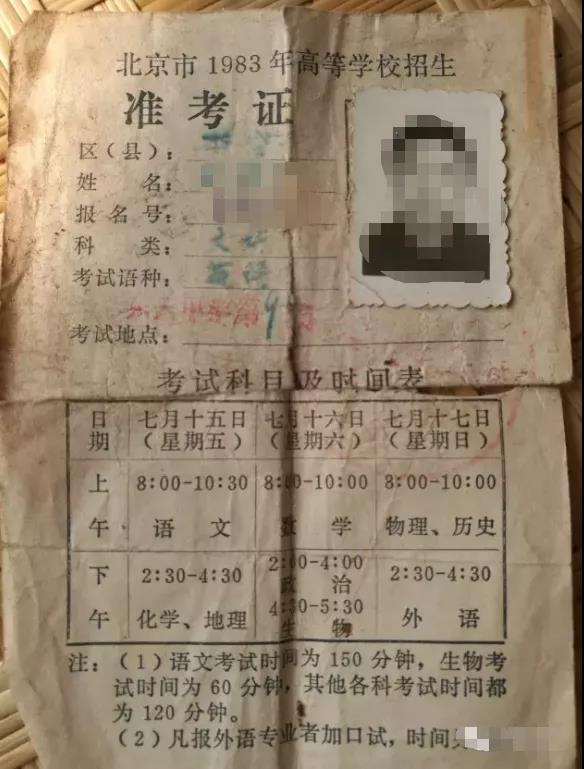 北京市1983年高等学校招生
准考证
区(县):
姓 名:
报名号:
科 类: 文科
考试语种: 英语
考试地点:
考试科目及时间表
日期 七月十五日(星期五) 七月十六日(星期六) 七月十七日(星期日)
上午 8:00-10:30 语 文 8:00-10:00 数 学 8:00-10:00 物理、历史
下午 2:30-4:30 化学、地理 2:00-4:00 政 治 4:30-5:30 生 物 2:30-4:30 外 语
注:(1)语文考试时间为150分钟,生物考
试时间为60分钟,其他各科考试时间都
为120分钟。
(2)凡报外语专业者加口试,时间